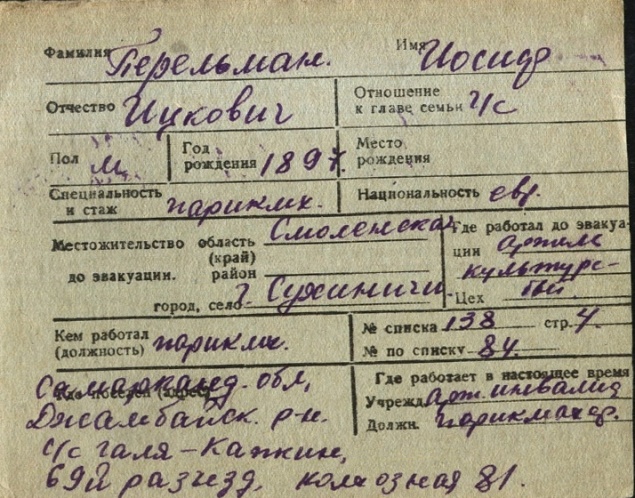 Фамилия Перельман. Имя Иосиф
Отчество Ицкович Отношение к главе семьи г/с
Пол м Год рождения 1897 Место рождения
Специальность и стаж парикмх. Национальность евр.
Местожительство область Смоленская Где работал до эвакуа-
(край) ции Артель
до эвакуации. район культурс-
город, село г. Сухиничи Цех
Кем работал (должность) парикмх. № списка 138 стр. 4.
№ по списку 84.
Самарканд. обл, Где работает в настоящее время
Джамбайск. р-н. Учрежд. Арт. инвалид
с/с Галя-Капкин, Должн. парикмахер.
69й разъезд, колхозная 81.